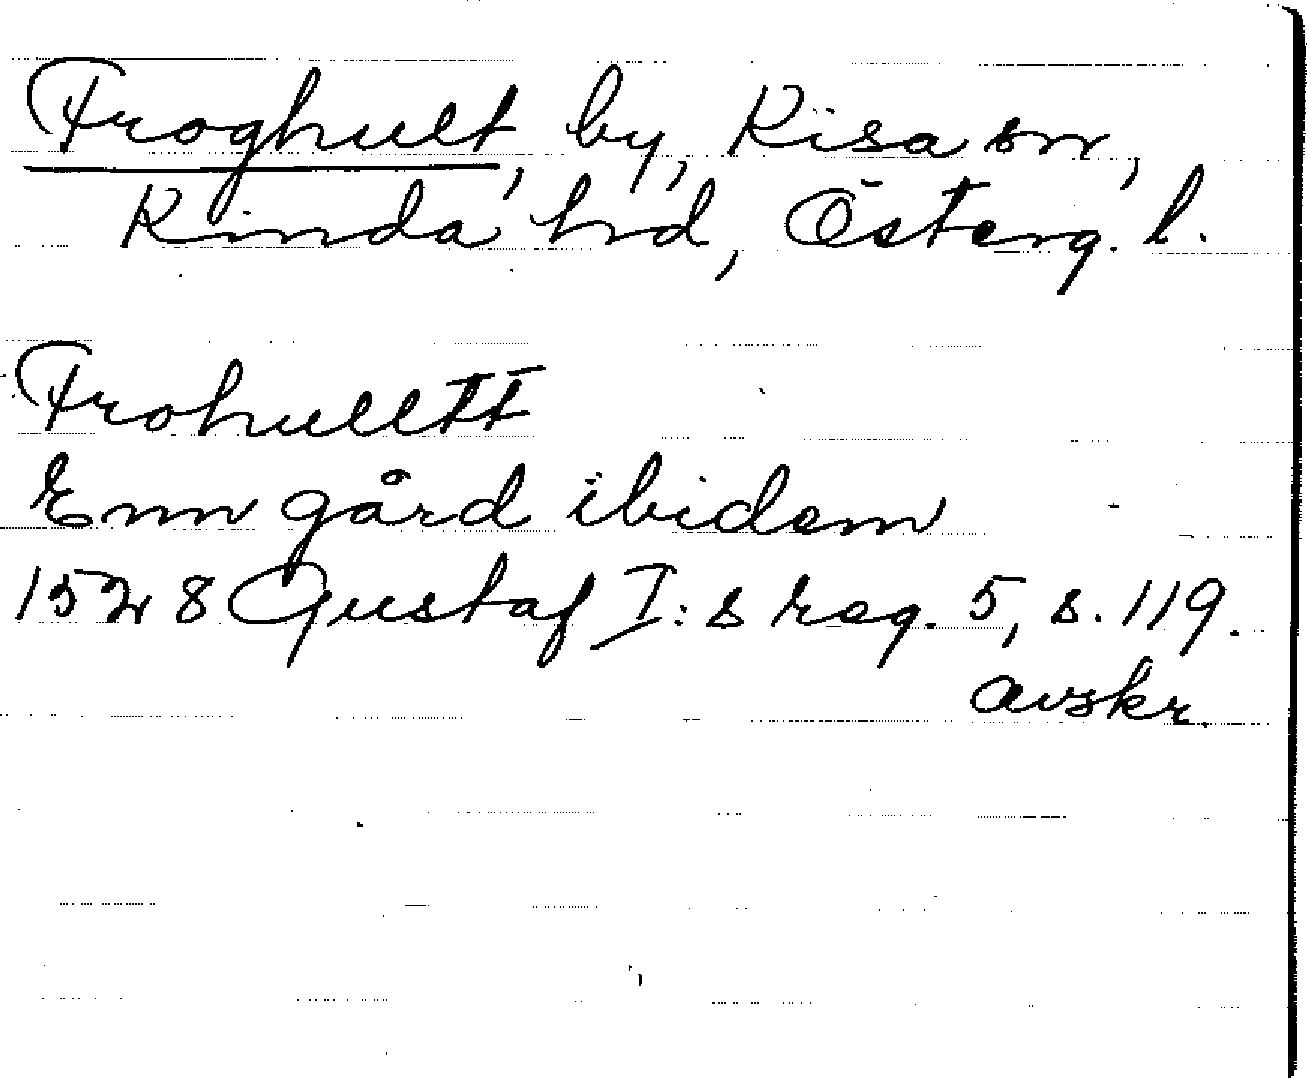 Froghult, by, Kisa sn,
Kinda hd, Österg. l.
Frohulltt
Enn gård ibidem
1528 Gustaf I:s reg. 5, s. 119.
avskr.